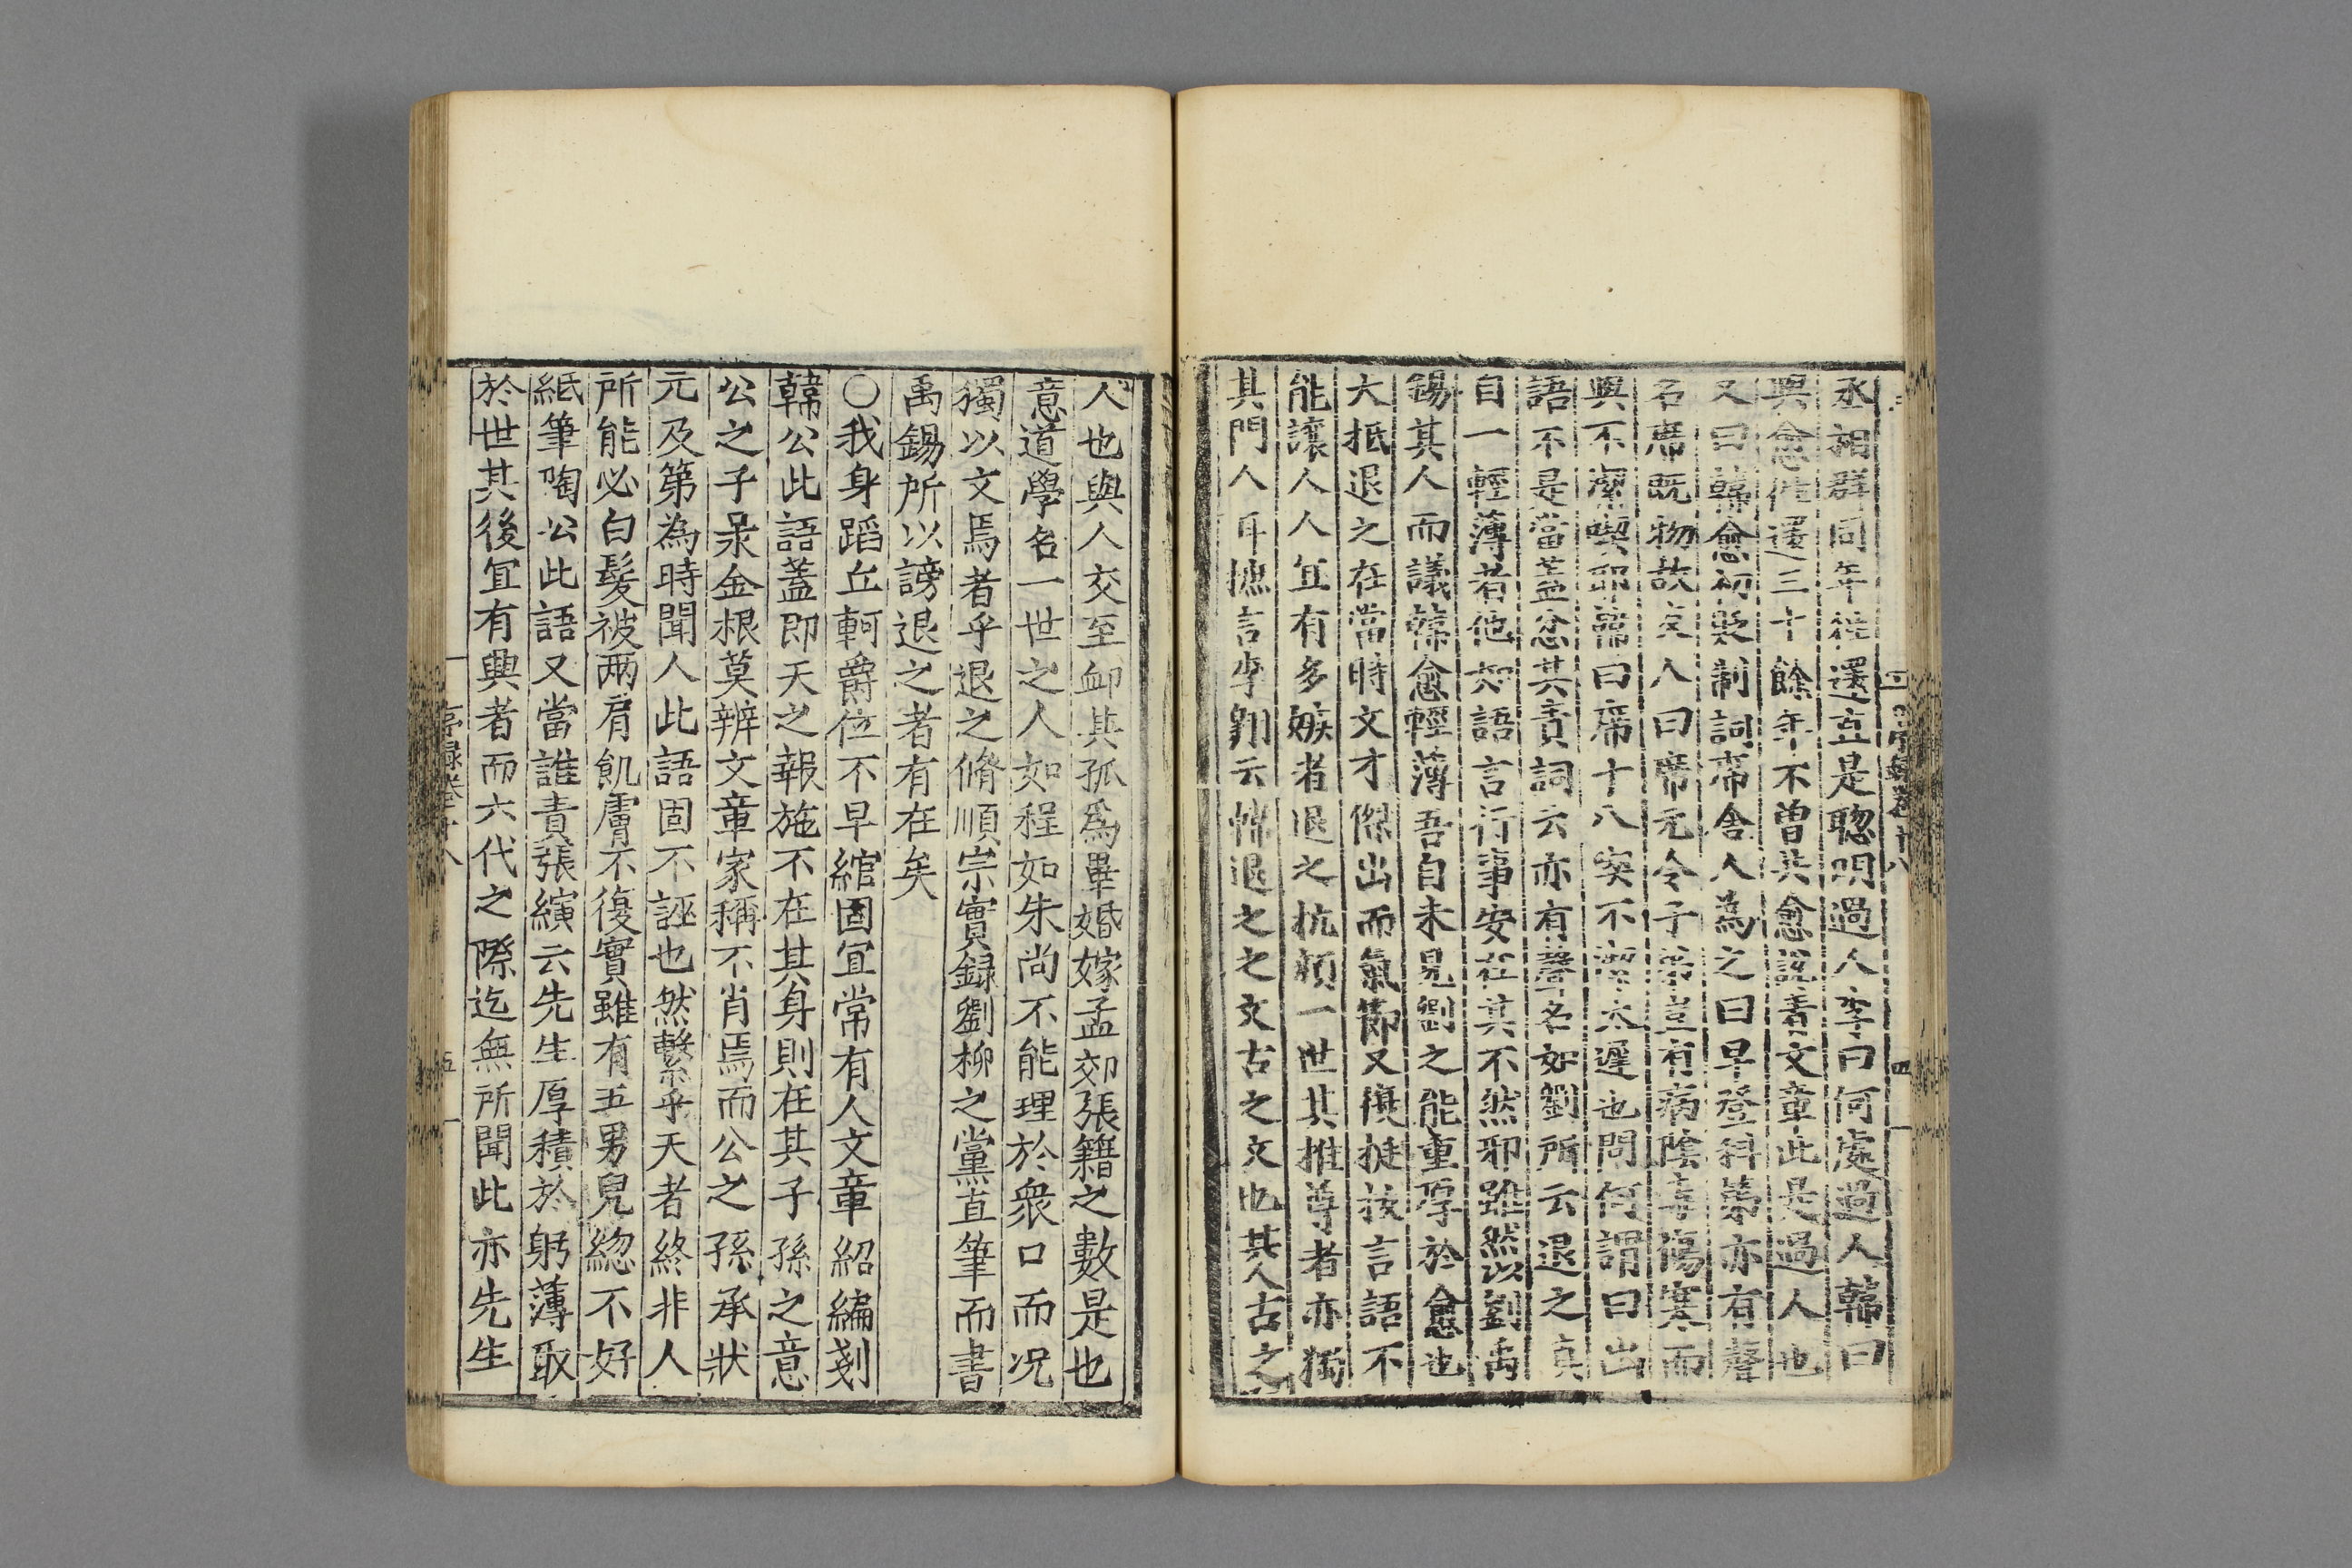 丞相群同年往還直是聰明過人李曰何處過人韓曰
與愈往還三十餘年不曾共愈說著文章此是過人也
又曰韓愈初貶制詞席舍人為之曰早登科第亦有聲
名席既物故友人曰席元令子弟豈有病陰毒傷寒而
與不潔喫耶韓曰席十八喫不潔太遲也問何謂曰出
語不是當盖忿其責詞云亦有聲名如劉所云退之真
自一輕薄者他如語言行事安在其不然邪雖然以劉禹
錫其人而議韓愈輕薄吾自未見劉之能重厚於愈也
大抵退之在當時文才傑出而氣節又復挺拔言語不
能讓人人冝有多嫉者退之抗顔一世其推尊者亦獨
其門人耳摭言李翱云悌退之之文古之文也其人古之
人也與人交至䘏其孤爲畢婚嫁孟郊張籍之數是也
意道學名一世之人如程如朱尚不能理於衆口而况
獨以文焉者乎退之脩順宗實録劉柳之黨直筆而書
禹錫所以謗退之者有在矣
○我身蹈丘軻爵位不早綰固冝常有人文章紹編剗
韓公此語蓋即天之報施不在其身則在其子孫之意
公之子杲金根莫辨文章家稱不肖焉而公之孫承狀
元及第為時聞人此語固不誣也然繫乎天者終非人
所能必白髮被兩肩飢膚不復實雖有五男兒緫不好
紙筆陶公此語又當誰責張縯云先生厚積於躬薄取
於世其後冝有興者而六代之際迄無所聞此亦先生